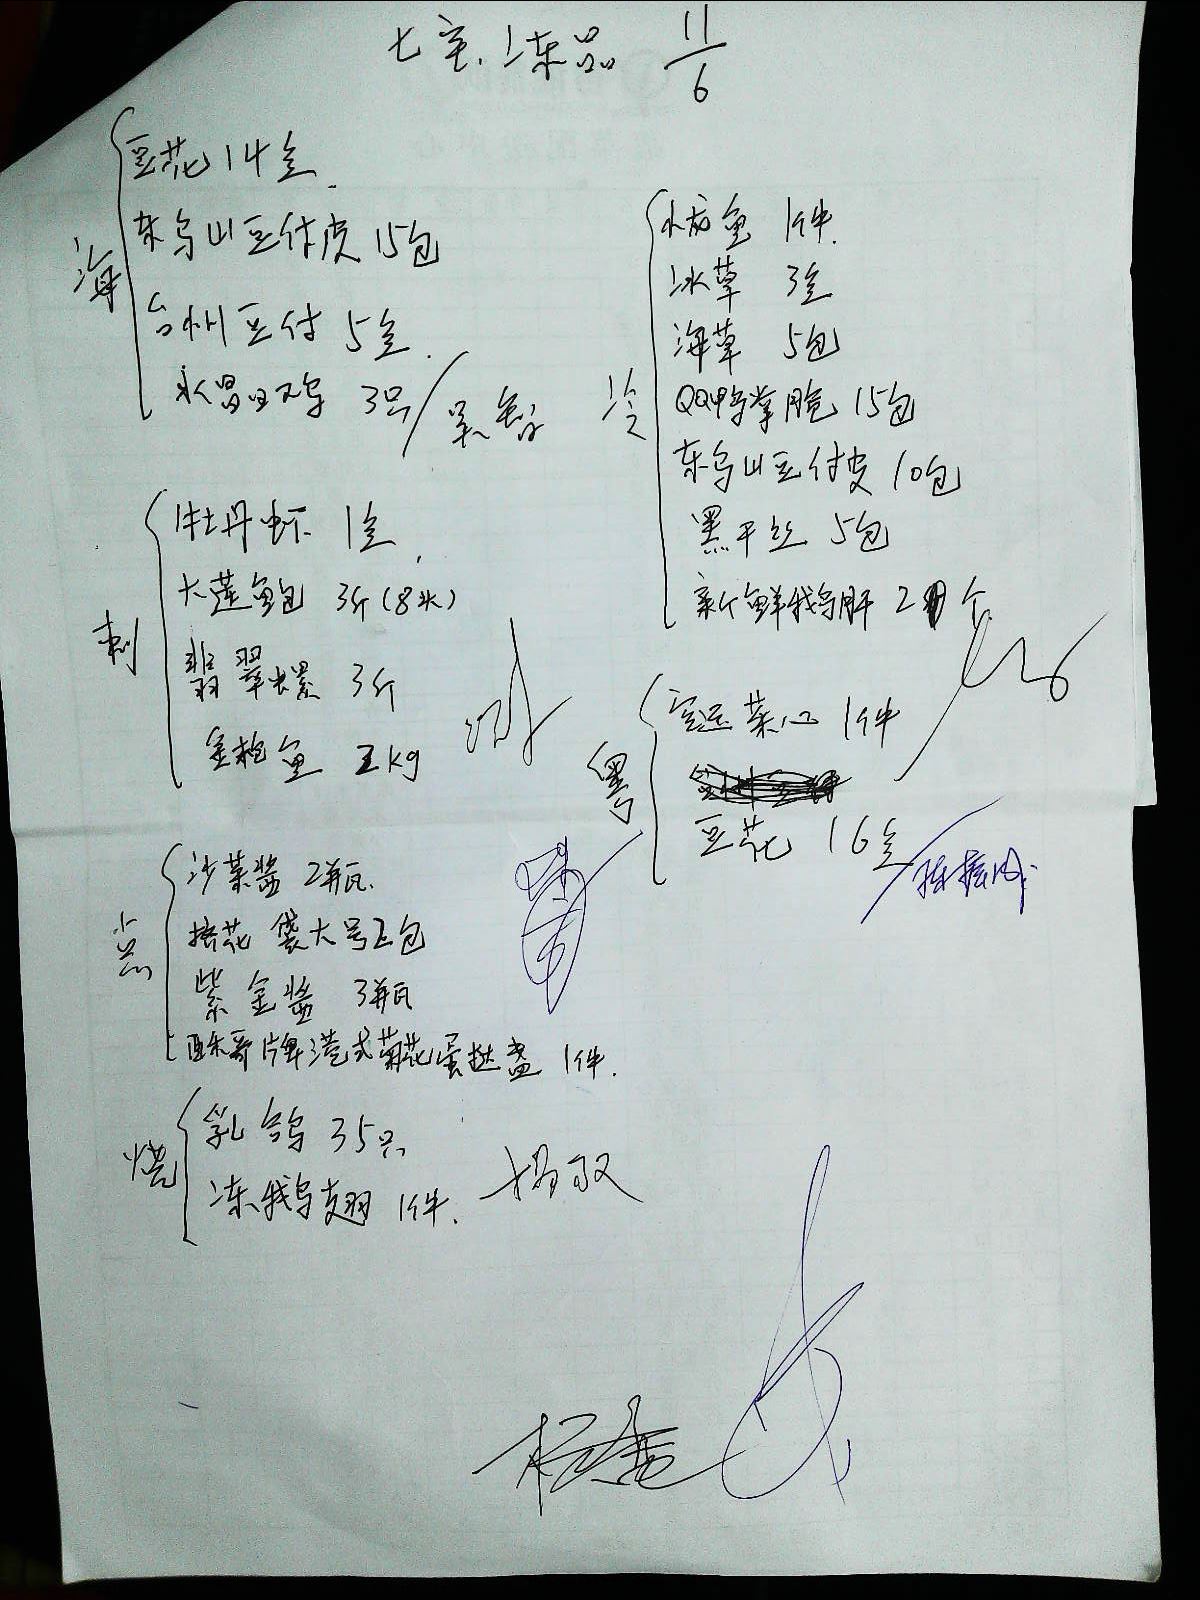 七宝.冻品 11/6
海
豆花 14盒.
东乌山豆付皮 15包
台州豆付 5盒.
永昌 鸡 3只
刺
牡丹虾 1盒.
大莲鲍 3斤(8头)
翡翠螺 3斤
金枪鱼 2kg
小点
沙茶酱 2瓶.
裱花袋大号2包
紫金酱 3瓶
酥哥牌港式菊花蛋挞盏 1件.
烧
乳鸽 35只
冻鹅翅 1件.
冷
水龙鱼 1件.
冰草 3盒
海草 5包
QQ鸭掌脱 15包
东乌山豆付皮 10包
黑干丝 5包
新鲜鹅肝 2个
粤
空运菜心 1件
豆花 16盒